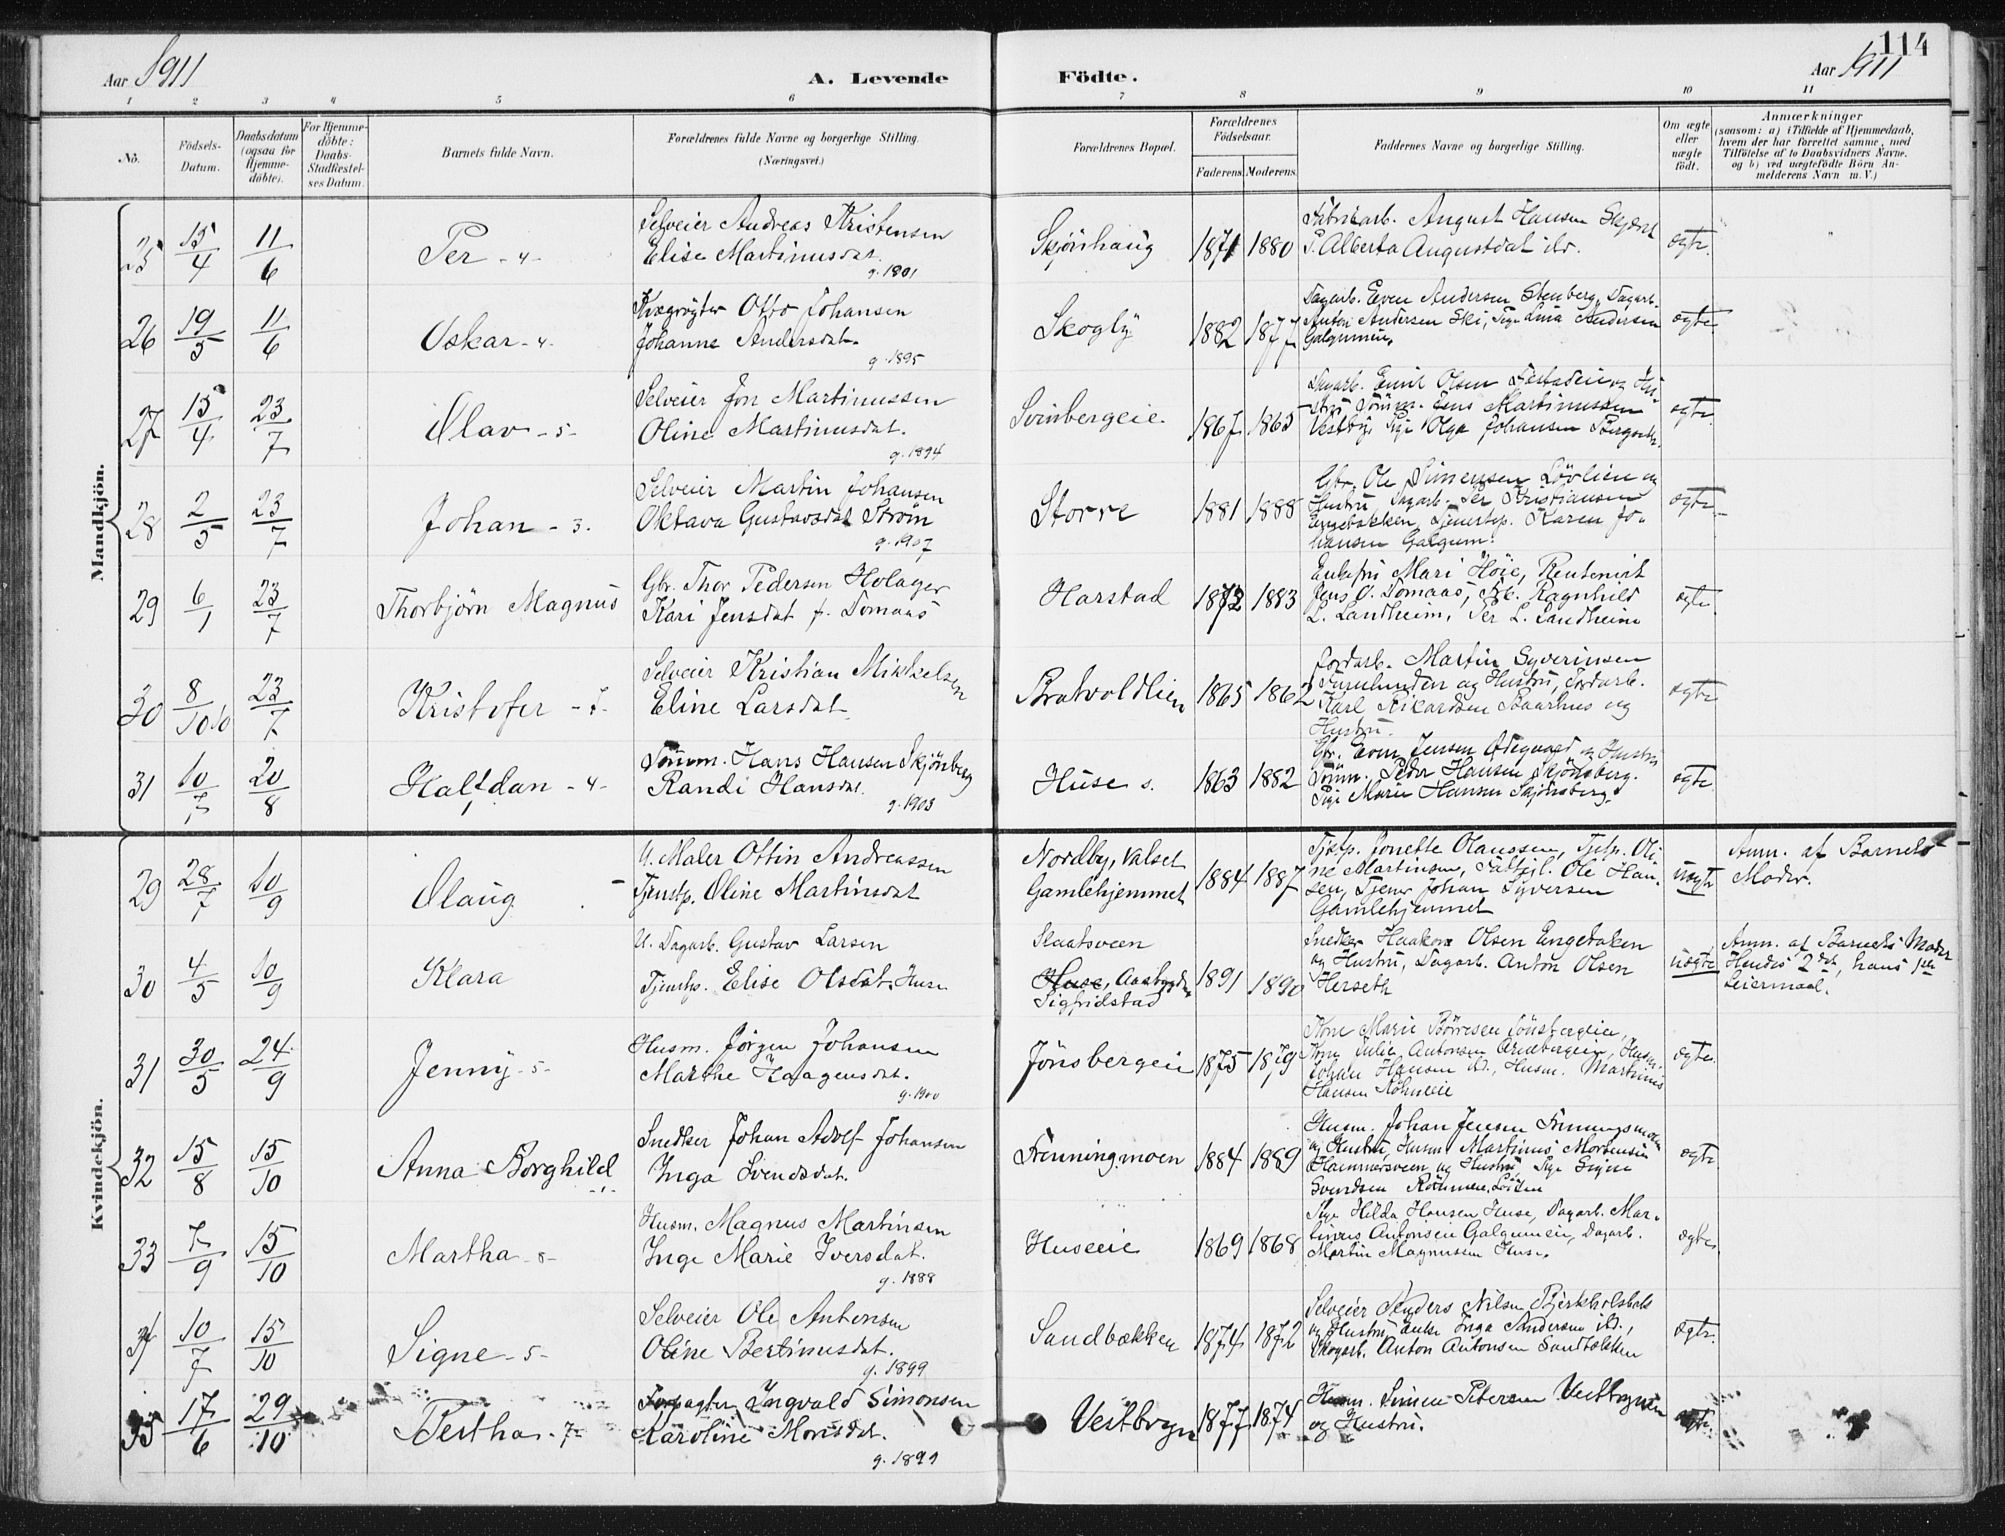 114
Aar 1911
A. Levende Födte.
Aar 1911
1 2 3 4 5 6 7 8 9 10 11
No.
Födsels-
Datum.
Daabsdatum
(ogsaa för
Hjemme-
döbte).
For Hjemme-
döbte:
Daabs-
Stadfæstel-
ses Datum.
Barnets fulde Navn.
Forældrenes fulde Navne og borgerlige Stilling.
(Næringsvei.)
Forældrenes Bopæl.
Forældrenes
Födselsaar.
Faderens. Moderens.
Faddernes Navne og borgerlige Stilling.
Om ægte
eller
uægte
födt.
Anmærkninger
(saasom: a) i Tilfælde af Hjemmedaab,
hvem der har forrettet samme, med
Tilföielse af to Daabsvidners Navne,
og b) ved uægtefödte Börn An-
melderens Navn m. V.)
Mandkjön.
25 15/4 11/6 Per - 4 -
Selveier Andreas Kristensen
Elise Martinusdat.
g. 1901
Skjönhaug 1871 1880
Fabrikarb. August Hansen
P. Alberta Augustdat ibd.
ægte.
26 19/5 11/6 Oskar - 4.
Kvægrögter Otto Johansen
Johanne Andersdat.
g. 1895
Skogly 1882 1877
Dagarb. Even Andersen Stenberg, Dagarb.
Anton Andersen Ski, Pige Lina Andersen
Galgumeie.
ægte
27 15/4 23/7 Olav - 5 -
Selveier Jon Martinussen
Oline Martinusdat.
g. 1894
Svinbergeie 1867 1865
Dagarb. Emil Olsen og Hu-
stru Tömm. Jens Martinussen
Vestby, Pige Olga Johansen
ægte
28 2/5 23/7 Johan - 3.
Selveier Martin Johansen
Oktava Gustavsdat Ström
g. 1907
Storre 1881 1888
Gbr. Ole Simensen Lövlien og
Hustru Dagarb. Per Kristiansen
Engebakken, Tjenestep. Karen Jo-
hansen Galgum.
ægte
29 6/1 23/7 Thorbjörn Magnus
Gbr. Thor Pedersen Holager
Kari Jensdat f. Domaas
Harstad 1872 1883
Enkefru Mari Höie, Rentenist
Jens O. Domaas, Frk. Ragnhild
L. Landheim, Per L. Landheim
ægte
30 8/10 10 23/7 Kristofer - 7 -
Selveier Kristian Mikkelsen
Eline Larsdat
Bratvoldlien 1865 1862
Jordarb. Martin Syverinsen
Furulunden og Hustru, Jordarb.
Karl Rikardsen Baarhus og
Hustru.
ægte
31 10/7 20/8 Halfdan - 4 -
Tömm. Hans Hansen Skjönsberg
Randi Hansdat.
g. 1903
Huse s. 1863 1882
Gbr. Even Jensen Ödegaard og Hustru
Tömm. Peder Hansen Skjönsberg.
Pige Marie Hansen Skjönsberg
ægte
Kvindekjön.
29 28/7 10/9 Olaug
U. Maler Ottin Andreassen
Tjenstp. Oline Martinsdat
Nordby, Valset
Gamlehjemmet
1884 1887
Tjstp. Olaussen, Tjstp. Oli-
ne Martinsen, Ole Han-
sen, Tjener Johan Syversen
Gamlehjemmet
uægte
Anm. af Barnets
Moder.
30 4/5 10/9 Klara
U. Dagarb. Gustav Larsen
Tjenstp. Elise Olsdat. Huse
Slaatsveen
Huse, Aasbygden
Sigfridstad
1891 1890
Snedker Haakon Olsen Engebakken
og Hustru, Dagarb. Anton Olsen
Herseth
uægte
Anm. af Barnets Moder
Hendes 2det, hans 1ste
Leiermaal.
31 30/5 24/9 Jenny - 5 -
Husm. Jörgen Johansen
Marthe Haagensdat.
g. 1900
Jönsbergeie 1875 1879
Kone Marie Börresen Jönsbergeie,
Kone Julie Antonsen Arnebergeie, Husm.
Johan Hansen ibd., Husm. Martinus
Hansen
ægte.
32 15/8 15/10 Anna Borghild
- 1 -
Snedker Johan Adolf Johansen
Inga Svendsdat.
Fenningmoen 1884 1889
Husm. Johan Jensen
og Hustru, Husm. Martinus Mortensen
Hammersveen og Hustru, Pige Signe
Svendsen
ægte
33 7/9 15/10 Martha - 8 -
Husm. Magnus Martinsen
Inge Marie Iversdat.
g. 1888
Huseeie 1869 1868
Pige Hilda Hansen Huse, Dagarb. Mar-
tinus Antonsen Galgumeie, Dagarb.
Martin Magnussen Huse.
ægte
34 10/7 15/10 Signe - 5 -
Selveier Ole Antonsen
Oline Bertinusdat.
g. 1899
Sandbækken 1874 1872
Selveier Anders Nilsen
og Hustru, Enke Inga Andersen ibd.,
Skogarb. Anton Antonsen Sandbækken
ægte.
35 17/6 29/10 Bertha - 7 -
Forpagter Ingvald Simonsen
Karoline Monsdat.
g. 1899
Vestbygn 1877 1874
Husm. Simen Petersen
og Hustru.
ægte